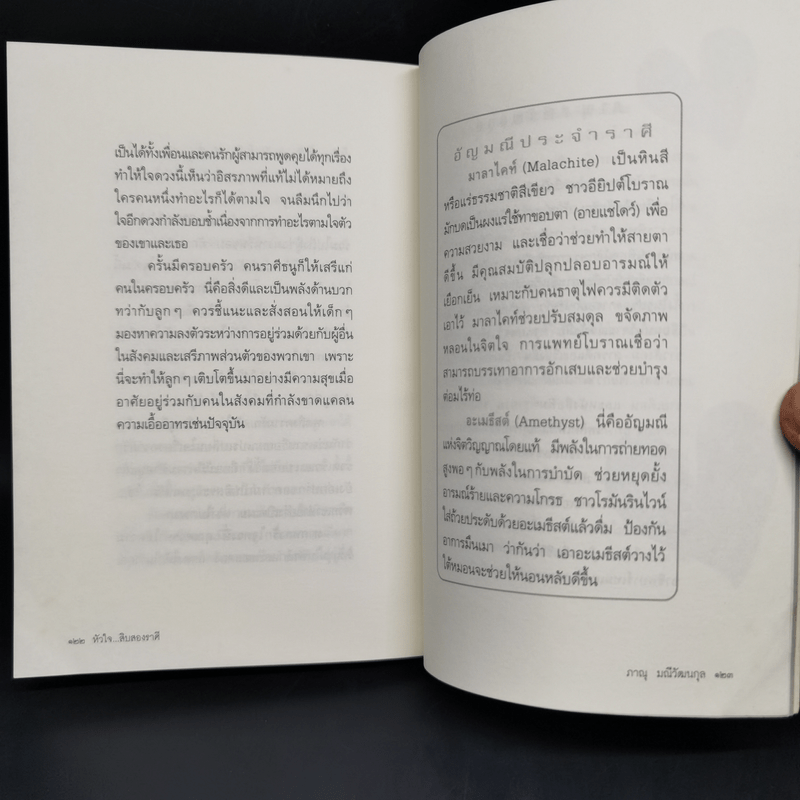 เป็นได้ทั้งเพื่อนและคนรักผู้สามารถพูดคุยได้ทุกเรื่อง
ทำให้ใจดวงนี้เห็นว่าอิสรภาพที่แท้ไม่ได้หมายถึง
ใครคนหนึ่งทำอะไรก็ได้ตามใจ จนลืมนึกไปว่า
ใจอีกดวงกำลังบอบช้ำเนื่องจากการทำอะไรตามใจตัว
ของเขาและเธอ
ครั้นมีครอบครัว คนราศีธนูก็ให้เสรีแก่
คนในครอบครัว นี่คือสิ่งดีและเป็นพลังด้านบวก
ทว่ากับลูกๆ ควรชี้แนะและสั่งสอนให้เด็กๆ
มองหาความลงตัวระหว่างการอยู่ร่วมด้วยกับผู้อื่น
ในสังคมและเสรีภาพส่วนตัวของพวกเขา เพราะ
นี่จะทำให้ลูกๆ เติบโตขึ้นมาอย่างมีความสุขเมื่อ
อาศัยอยู่ร่วมกับคนในสังคมที่กำลังขาดแคลน
ความเอื้ออาทรเช่นปัจจุบัน
๑๒๒ หัวใจ...สิบสองราศี
อัญมณีประจำราศี
มาลาไคท์ (Malachite) เป็นหินสี
หรือแร่ธรรมชาติสีเขียว ชาวอียิปต์โบราณ
มักบดเป็นผงแร่ใช้ทาขอบตา (อายแชโดว์) เพื่อ
ความสวยงาม และเชื่อว่าช่วยทำให้สายตา
ดีขึ้น มีคุณสมบัติปลุกปลอบอารมณ์ให้
เยือกเย็น เหมาะกับคนธาตุไฟควรมีติดตัว
เอาไว้ มาลาไคท์ช่วยปรับสมดุล ขจัดภาพ
หลอนในจิตใจ การแพทย์โบราณเชื่อว่า
สามารถบรรเทาอาการอักเสบและช่วยบำรุง
ต่อมไร้ท่อ
อะเมธีสต์ (Amethyst) นี่คืออัญมณี
แห่งจิตวิญญาณโดยแท้ มีพลังในการถ่ายทอด
สูงพอๆ กับพลังในการบำบัด ช่วยหยุดยั้ง
อารมณ์ร้ายและความโกรธ ชาวโรมันรินไวน์
ใส่ถ้วยประดับด้วยอะเมธีสต์แล้วดื่ม ป้องกัน
อาการมึนเมา ว่ากันว่า เอาอะเมธีสต์วางไว้
ใต้หมอนจะช่วยให้นอนหลับดีขึ้น
ภาณุ มณีวัฒนกุล ๑๒๓